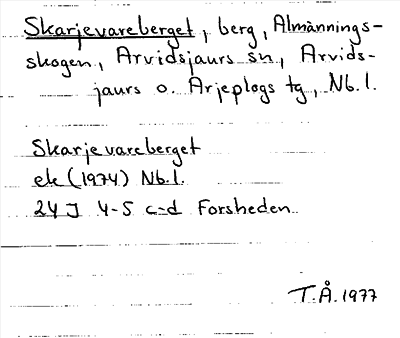 Skarjevareberget, berg, Almännings-
skogen, Arvidsjaurs sn, Arvids-
jaurs o. Arjeplogs tg, Nb. l.
Skarjevareberget
ek (1974) Nb. l.
24 J 4-5 c-d Forsheden
T.Å. 1977